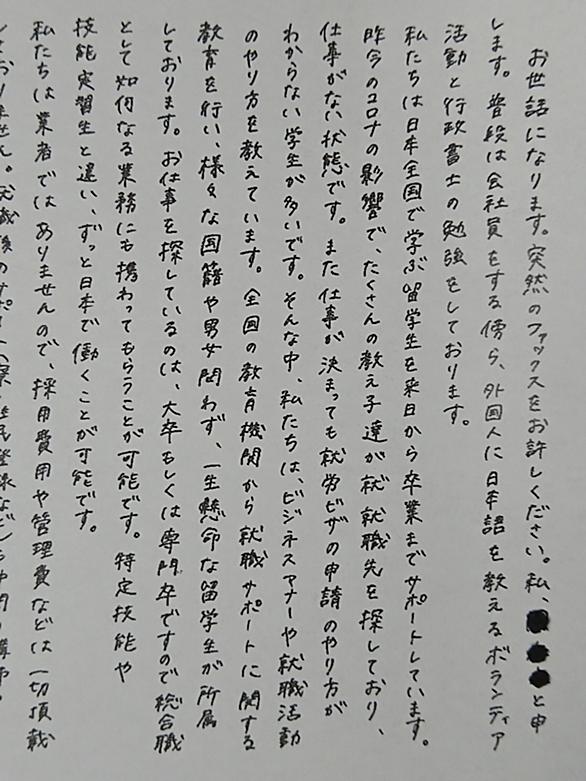 お世話になります。突然のファックスをお許しください。私、●●●と申
します。普段は会社員をする傍ら、外国人に日本語を教えるボランティア
活動と行政書士の勉強をしております。
私たちは日本全国で学ぶ留学生を来日から卒業までサポートしています。
昨今のコロナの影響で、たくさんの教え子達が就 就職先を探しており、
仕事がない状態です。また仕事が決まっても就労ビザの申請のやり方が
わからない学生が多いです。そんな中、私たちは、ビジネスマナーや就職活動
のやり方を教えています。全国の教育機関から就職サポートに関する
教育を行い、様々な国籍や男女問わず、一生懸命な留学生が所属
しております。お仕事を探しているのは、大卒もしくは専門卒ですので総合職
として如何なる業務にも携わってもらうことが可能です。特定技能や
技能実習生と違い、ずっと日本で働くことが可能です。
私たちは業者ではありませんので、採用費用や管理費などは一切頂戴
しておりません。